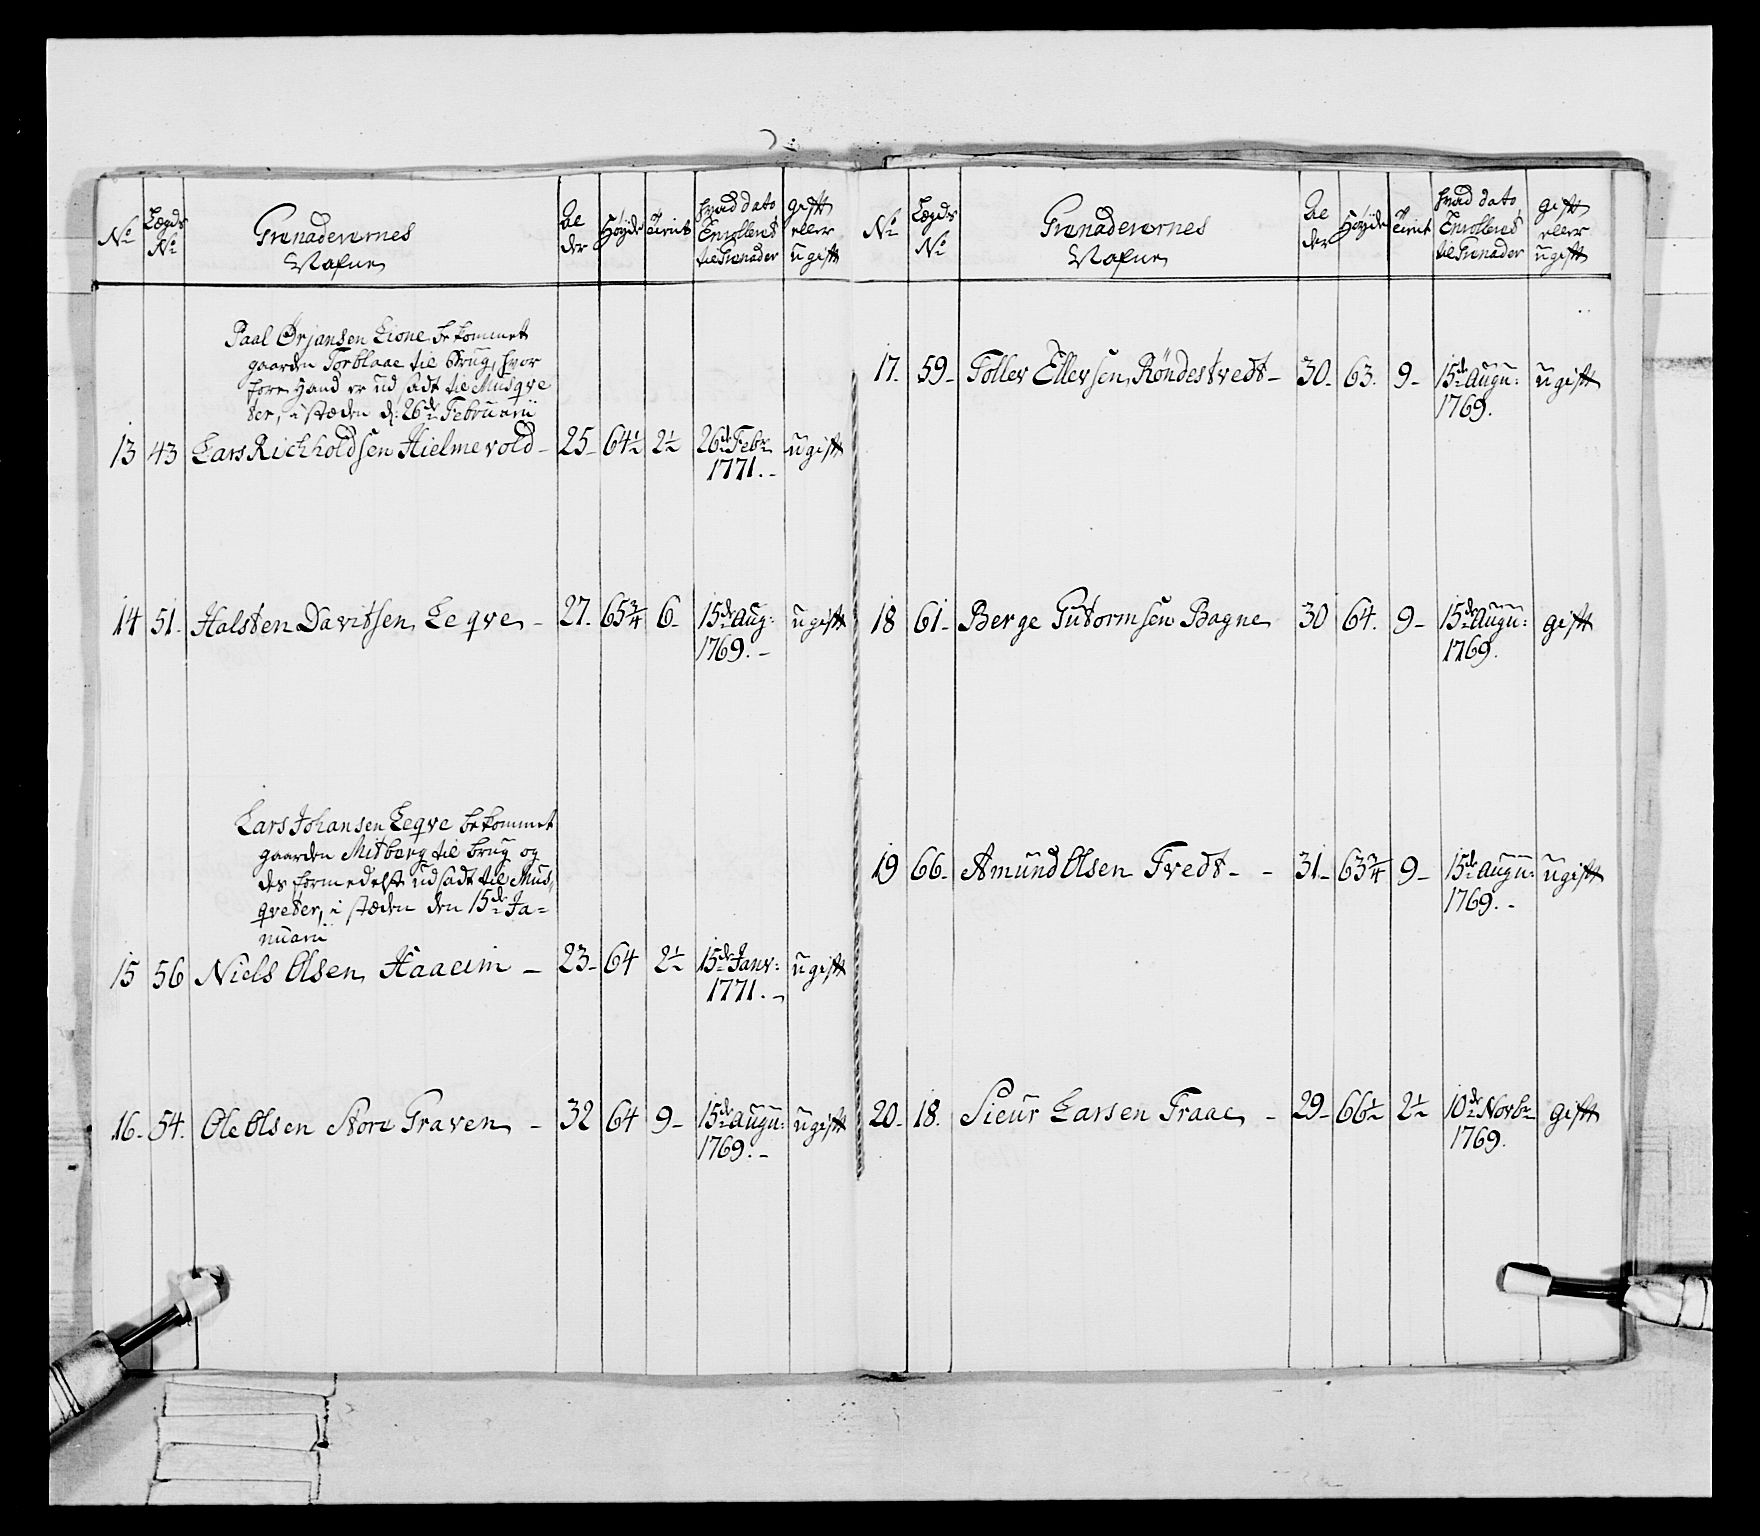 No
Lægds No
Grenaderernes Nafne
Al der
Høyde
Tienit
hvad dato Enrolleret til Grenader
gift eller ugift
Paal Ørjansen Lione bekommet
gaarden Torblaae til Brug, hvor
fore hand er ud sadt til Musqve
ter, i stæden d: 26de Februarii
13 43 Lars Richholdsen Hielmevold - 25- 64½ 2½ 26de Febr 1771.- ugift
14 51- Halsten Davitsen Leqve - 27. 65¾ 6- 15de Aug: 1769.- ugift
Lars Johansen Leqve bekommet
gaarden Mitborg til brug og
des formedelst udsadt til Mus,
qveter, i stæden den 15de Ja=
nuarii
15 56 Niels Olsen Haaeim - 23- 64 2½ 15de Janv: 1771.- ugift
16- 54. Ole Olsen Store Graven - 32 64 9- 15de Augu: 1769.- ugift
No
Lægds No
Grenaderernes Nafne
Al der
Høyde
Tienit
hvad dato Enrolleret til Grenader
gift eller ugift
17- 59- Toller Ellevsen Röndestvedt- 30- 63. 9- 15de Augu: 1769. ugift
18 61- Berge Gutormsen Bagne 30 64. 9- 15de Augu: 1769. gift
19 66- Amund Olsen Tvedt- - 31- 63¾ 9- 15de Augu: 1769.- ugift
20- 18. Sieur Larsen Traae - 29- 66½ 2½ 10de Novb 1769. gift